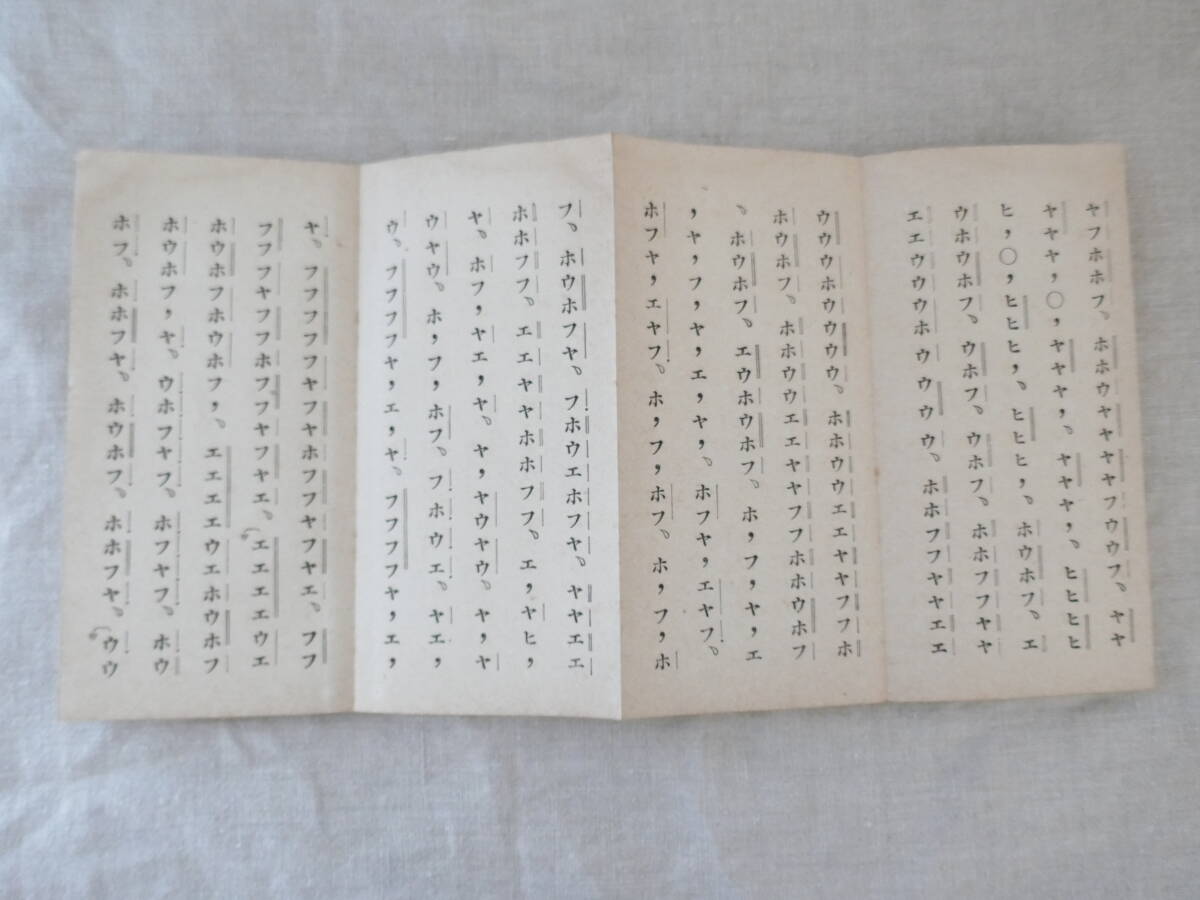 ヤフホホフ。ホホウヤヤヤヤフウウフ。ヤヤ
ヤヤヤ,〇,ヤヤヤ,。ヤヤヤ,。ヒヒヒヒ
ヒ,〇,ヒヒヒ,。ヒヒヒ,。ホウホフ。エ
ウホウウホフ。ウホフ。ウホフ。ホホフフヤヤ
エエウウウホウウウウ。ホホフフヤヤエエ
ウウウホウウウウ。ホホウウエエヤヤフフホ
ホウホフ。ホホウウエエヤヤフフホホウホフ
。ホウホフ。エウホウホフ。ホ,フ,ヤ,エ
,ヤ,フ,ヤ,エ,ヤ,。ホフヤ,エヤフ。
ホフヤ,エヤフ。ホ,フ,ホフ。ホ,フ,ホ
フ。ホウホフヤ。フホウエホフヤ。ヤヤエエ
ホホフフ。エエヤヤホホフフ。エ,ヤヒ,
ヤ。ホフ,ヤエ,ヤ。ヤ,ヤウヤウ。ヤ,ヤ
ウヤウ。ホ,フ,ホフ。フホウエ。ヤエ,
ウ。フフフフヤ,エ,ヤ。フフフフヤ,エ,
ヤ。フフフフフヤフヤホフフヤフヤエ。フフ
フフフヤフフホフフヤフヤエ。エエエエウエ
ホウホフホウホフ,。エエエエウエホウホフ
ホウホフ,ヤ。ウホフヤフ。ホフヤフ。ホウ
ホフ。ホホフヤ。ホウホフ。ホホフヤ。ウウ